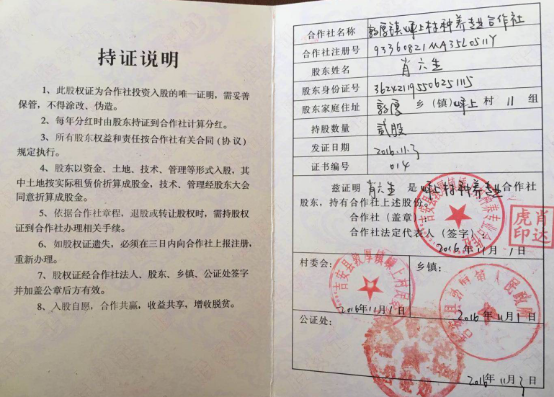 持证说明
1、此股权证为合作社投资入股的唯一证明，需妥善
保管，不得涂改、伪造。
2、每年分红时由股东持证到合作社计算分红。
3、所有股东权益和责任按合作社有关合同（协议）
规定执行。
4、股东以资金、土地、技术、管理等形式入股，其
中土地按实际租赁价折算成股金，技术、管理经股东大会
同意折算成股金。
5、依据合作社章程，退股或转让股权时，需持股权
证到合作社办理相关手续。
6、如股权证遗失，必须在三日内向合作社上报注册，
重新办理。
7、股权证经合作社法人，股东、乡镇、公证处签字
并加盖公章后方有效。
8、入股自愿，合作共赢，收益共享，增收脱贫。
合作社名称 敦厚镇 上村种养专业合作社
合作社注册号
股东姓名 肖六生
股东身份证号
股东家庭住址 敦厚 乡（镇） 上 村 11 组
持股数量 贰股
发证日期 2016.11.3
证书编号 014
兹证明 肖六生 是 上村种养专业合作社
股东，持有合作社上述股份。
合作社（盖章）
合作社法定代表人（签字）：
2016年11月1日
肖达虎印
村委会：
2016年11月1日
乡镇：
2016年11月1日
公证处：
2016年11月3日